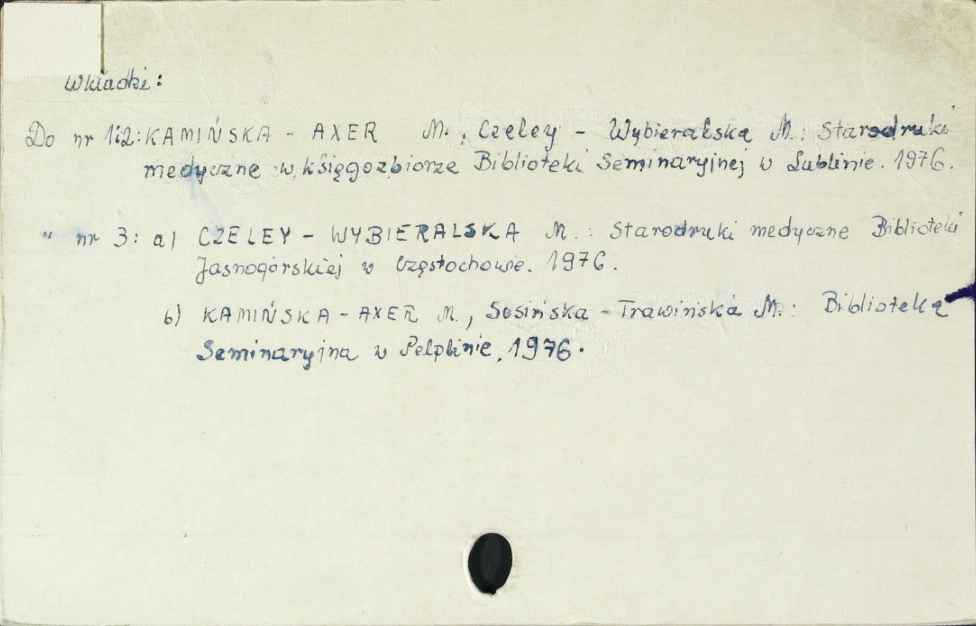 Wkładki:
Do nr 1i2: KAMIŃSKA - AXER M., Czeley - Wybieralska M.: Starodruki
medyczne w księgozbiorze Biblioteki Seminaryjnej w Lublinie. 1976.
" nr 3: a) CZELEY - WYBIERALSKA M.: Starodruki medyczne Biblioteki
Jasnogórskiej w Częstochowie. 1976.
b) KAMIŃSKA - AXER M., Sosińska - Trawińska M.: Biblioteka
Seminaryjna w Pelplinie, 1976.